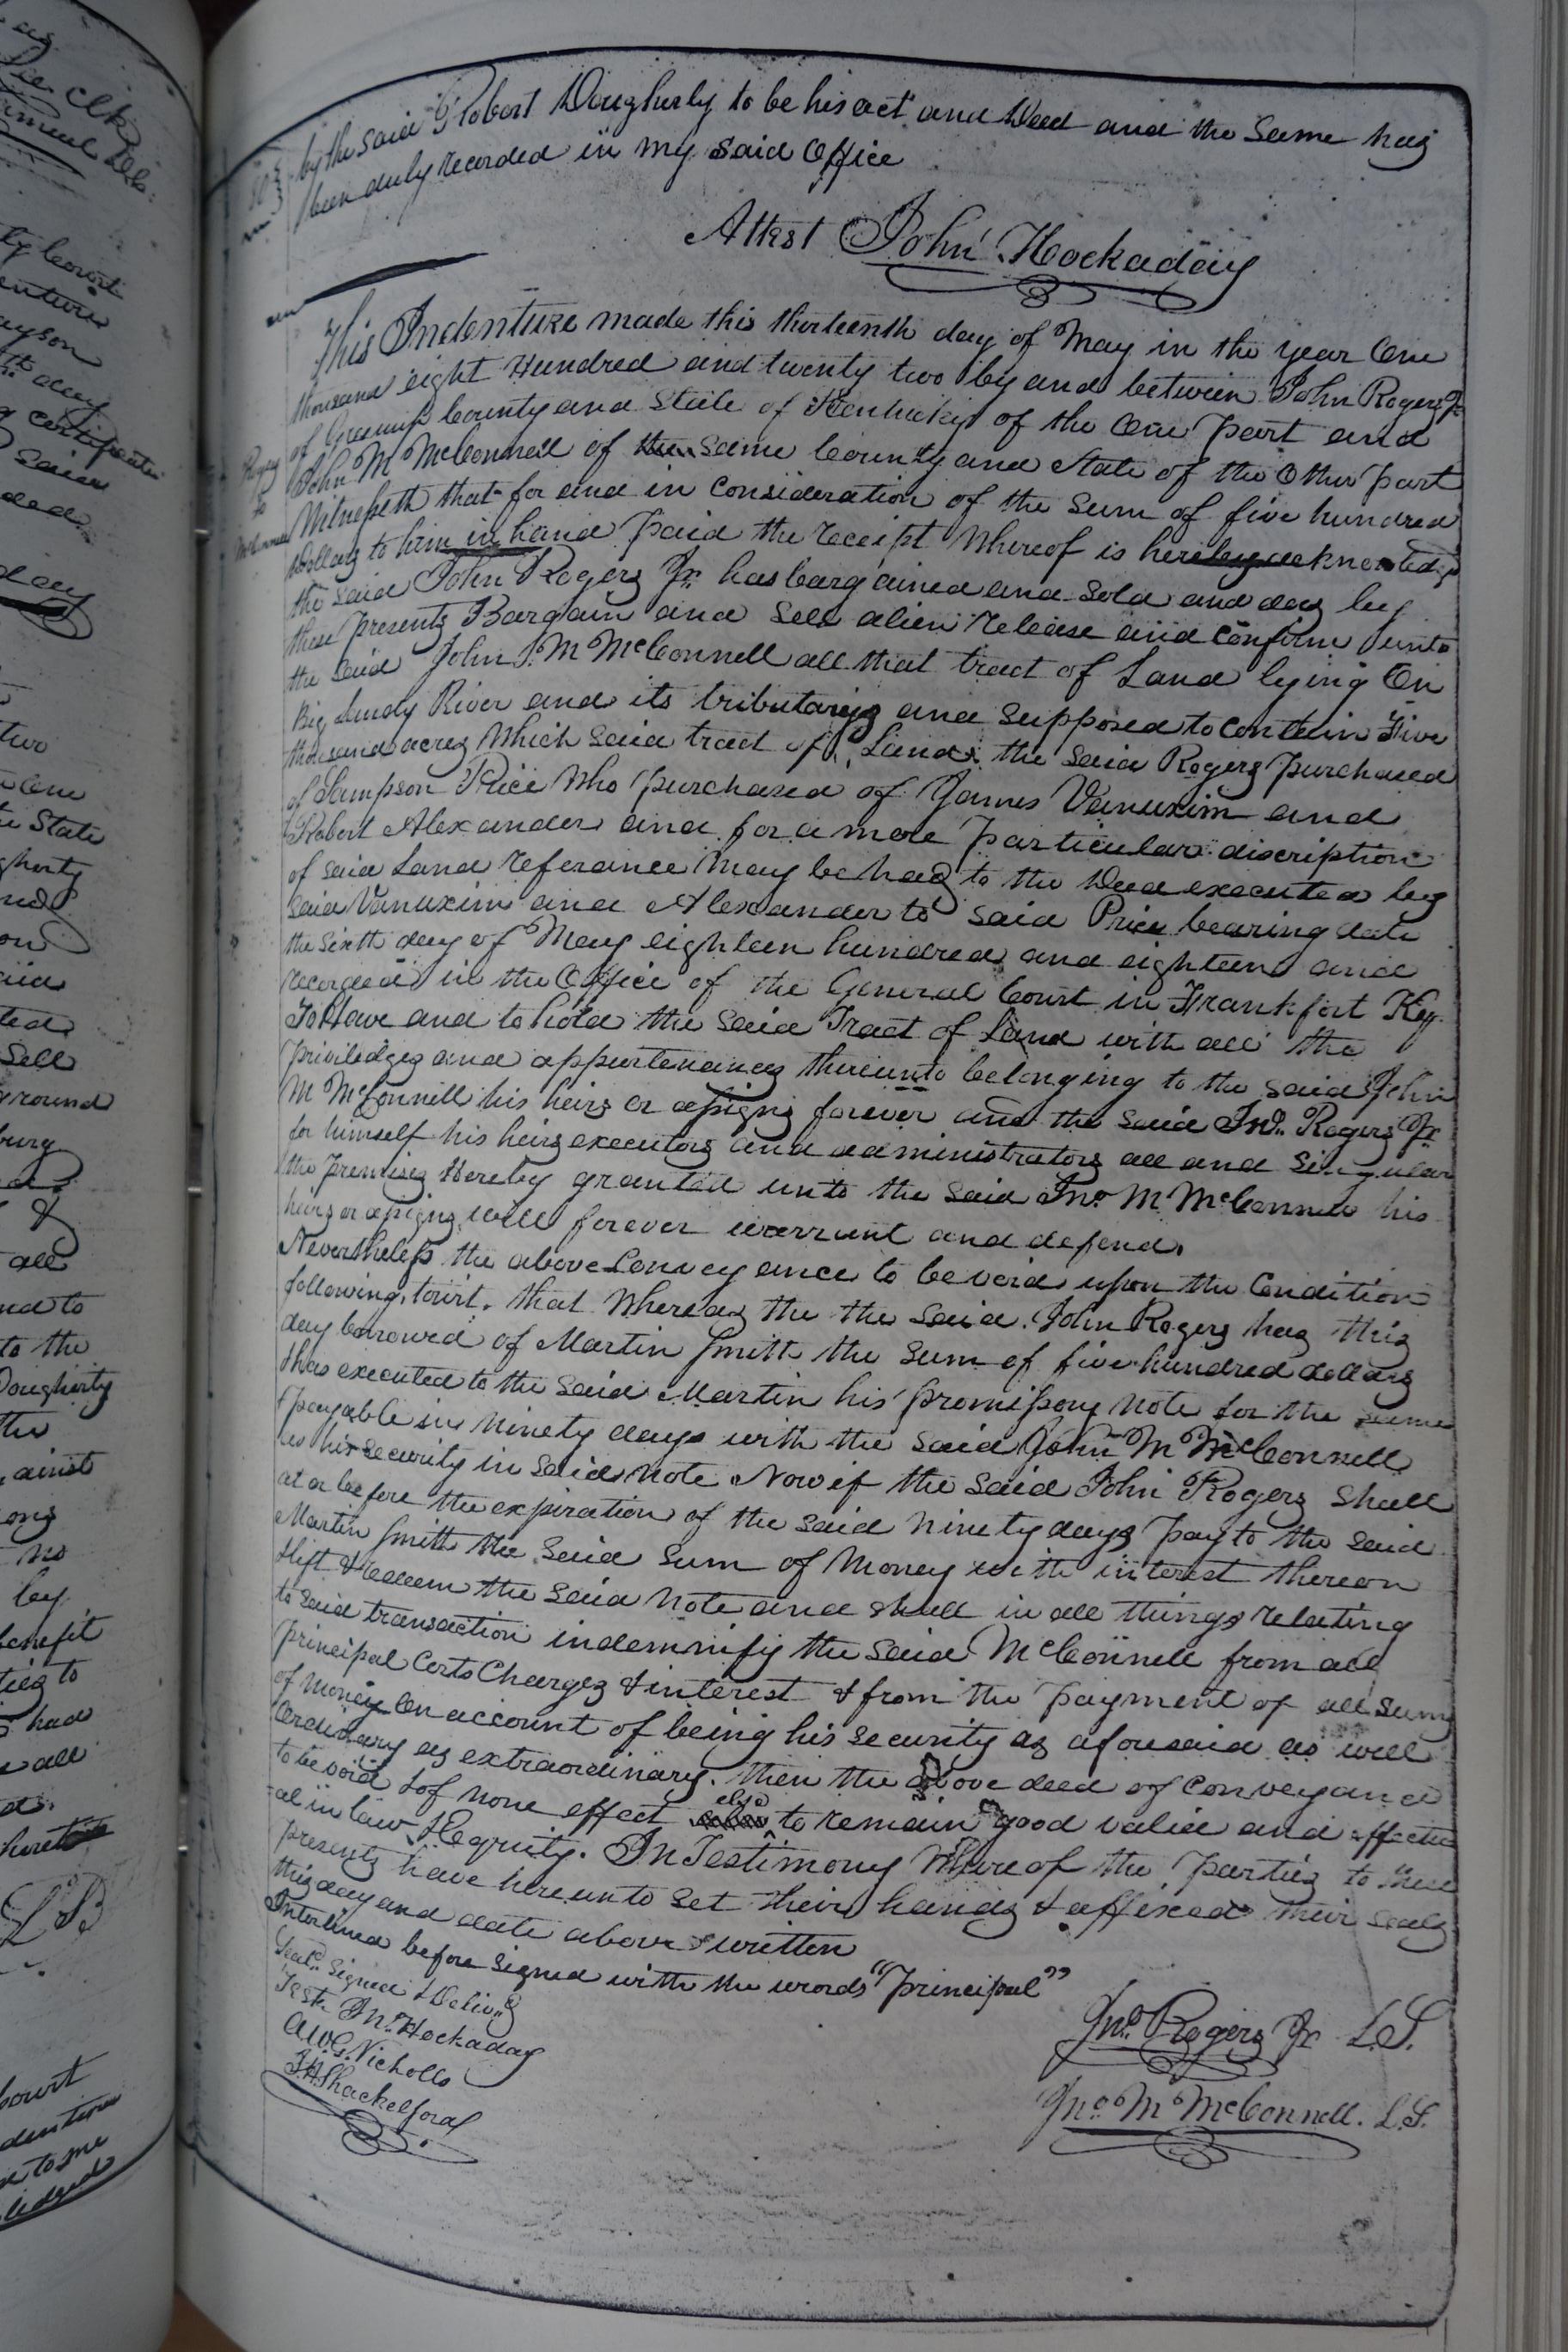 by the said Robert Dougherty to be his act and Deed and the Same has
been duly recorded in my said Office
Attest John Hockaday
This Indenture made this thirteenth day of May in the year One
thousand eight Hundred and twenty two by and between John Rogers Jr
of Greenup County and State of Kentucky of the One part and
John M McConnell of the same County and State of the Other part
Witnesseth that for and in Consideration of the Sum of five hundred
Dollars to him in hand paid the receipt Whereof is hereby acknowledged
the said John Rogers Jr has bargained and Sold and does by
these presents Bargain and Sell alien release and confirm unto
the said John M McConnell all that tract of Land lying On
Big Sandy River and its tributarys and Supposed to contain Five
thousand acres Which said tract of Land the said Rogers purchased
of Sampson Price Who purchased of James Vanuxim and
Robert Alexander and for a more particular discription
of said Land referance may be had to the Deed executed by
said Vanuxim and Alexander to said Price bearing date
the sixth day of May eighteen hundred and eighteen and
recorded in the Office of the General Court in Frankfort Ky.
To Have and to hold the said Tract of Land with all the
priviledges and appurtenances thereunto belonging to the said John
M McConnell his heirs or assigns forever and the said Jno. Rogers Jr
for himself his heirs executors and administrators all and Singular
the premises Hereby granted unto the said Jno. M McConnell his
heirs or assigns will forever warrant and defend.
Nevertheless the above Conveyance to be void upon the Condition
following, towit. that Whereas the the said John Rogers has this
day borrowed of Martin Smith the Sum of five hundred dollars
& has executed to the said Martin his promissory note for the same
payable in ninety days with the said John M McConnell
as his security in said note Now if the said John Rogers Shall
at or before the expiration of the said ninety days pay to the said
Martin Smith the said Sum of Money with interest thereon
& lift & redeem the said Note and shall in all things relating
to said transaction indemnify the said McConnell from all
principal Costs Charges & interest & from the payment of all sums
of money On account of being his security as aforesaid as well
Ordinary as extraordinary. then the above deed of Conveyance
to be void & of none effect else to remain good valid and effectu
=al in law & Equity. In Testimony Whereof the parties to these
presents have hereunto set their hands & affixed their seals
this day and date above written
Interlined before signed with the words "principal"
Seald. Signed & Delivd.
Test. Jno. Hockaday
A.W.G. Nicholls
J.H. Shackelford
Jno. Rogers Jr L.S.
Jno. M McConnell. L.S.